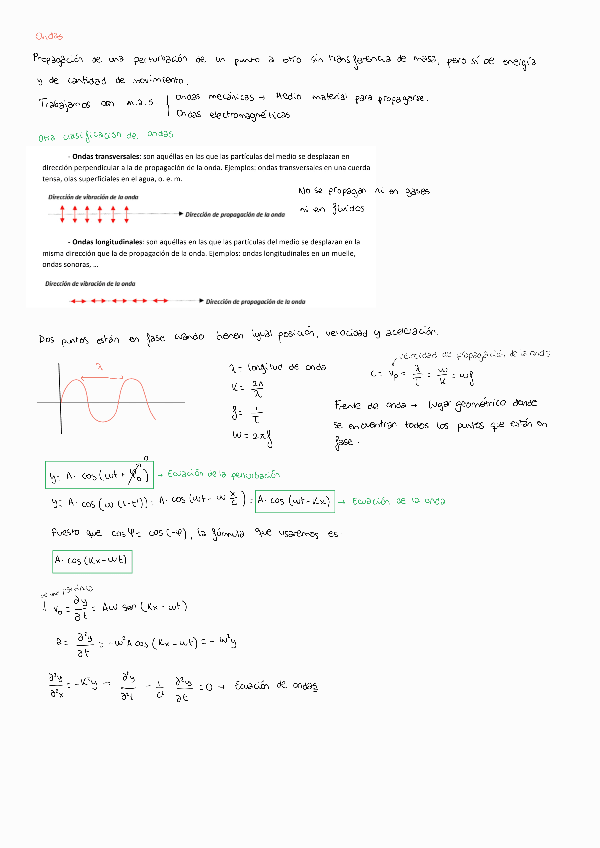 Ondas
Propagación de una perturbación de un punto a otro sin transferencia de masa, pero sí de energía
y de cantidad de movimiento.
Trabajamos con m.a.s
Ondas mecánicas → Medio material para propagarse.
Ondas electromagnéticas
Otra clasificación de ondas
- Ondas transversales: son aquéllas en las que las partículas del medio se desplazan en
dirección perpendicular a la de propagación de la onda. Ejemplos: ondas transversales en una cuerda
tensa, olas superficiales en el agua, o. e. m.
Dirección de vibración de la onda
Dirección de propagación de la onda
No se propagan ni en gases
ni en fluidos
- Ondas longitudinales: son aquéllas en las que las partículas del medio se desplazan en la
misma dirección que la de propagación de la onda. Ejemplos: ondas longitudinales en un muelle,
ondas sonoras, ...
Dirección de vibración de la onda
Dirección de propagación de la onda
Dos puntos están en fase cuando tienen igual posición, velocidad y aceleración.
λ
λ = longitud de onda
K = 2π/λ
f = 1/T
W = 2πf
velocidad de propagación de la onda
c = Vp = λ/T = w/K =
Frente de onda → lugar geométrico donde
se encuentran todos los puntos que están en
fase.
y = A · cos(wt + φ0) → Ecuación de la perturbación
0
y = A · cos(w(t-t')) = A · cos(wt - w x/c) = A · cos(wt - Kx) → Ecuación de la onda
Puesto que cos φ = cos(-φ), la fórmula que usaremos es
A · cos(Kx - wt)
! = ∂y/∂t = Aw sen(Kx - wt)
a = ∂²y/∂t = -w²A cos(Kx - wt) = -w²y
∂²y/∂²x = -K²y → ∂²y - 1/c² ∂²y/∂t = 0 → Ecuación de ondas